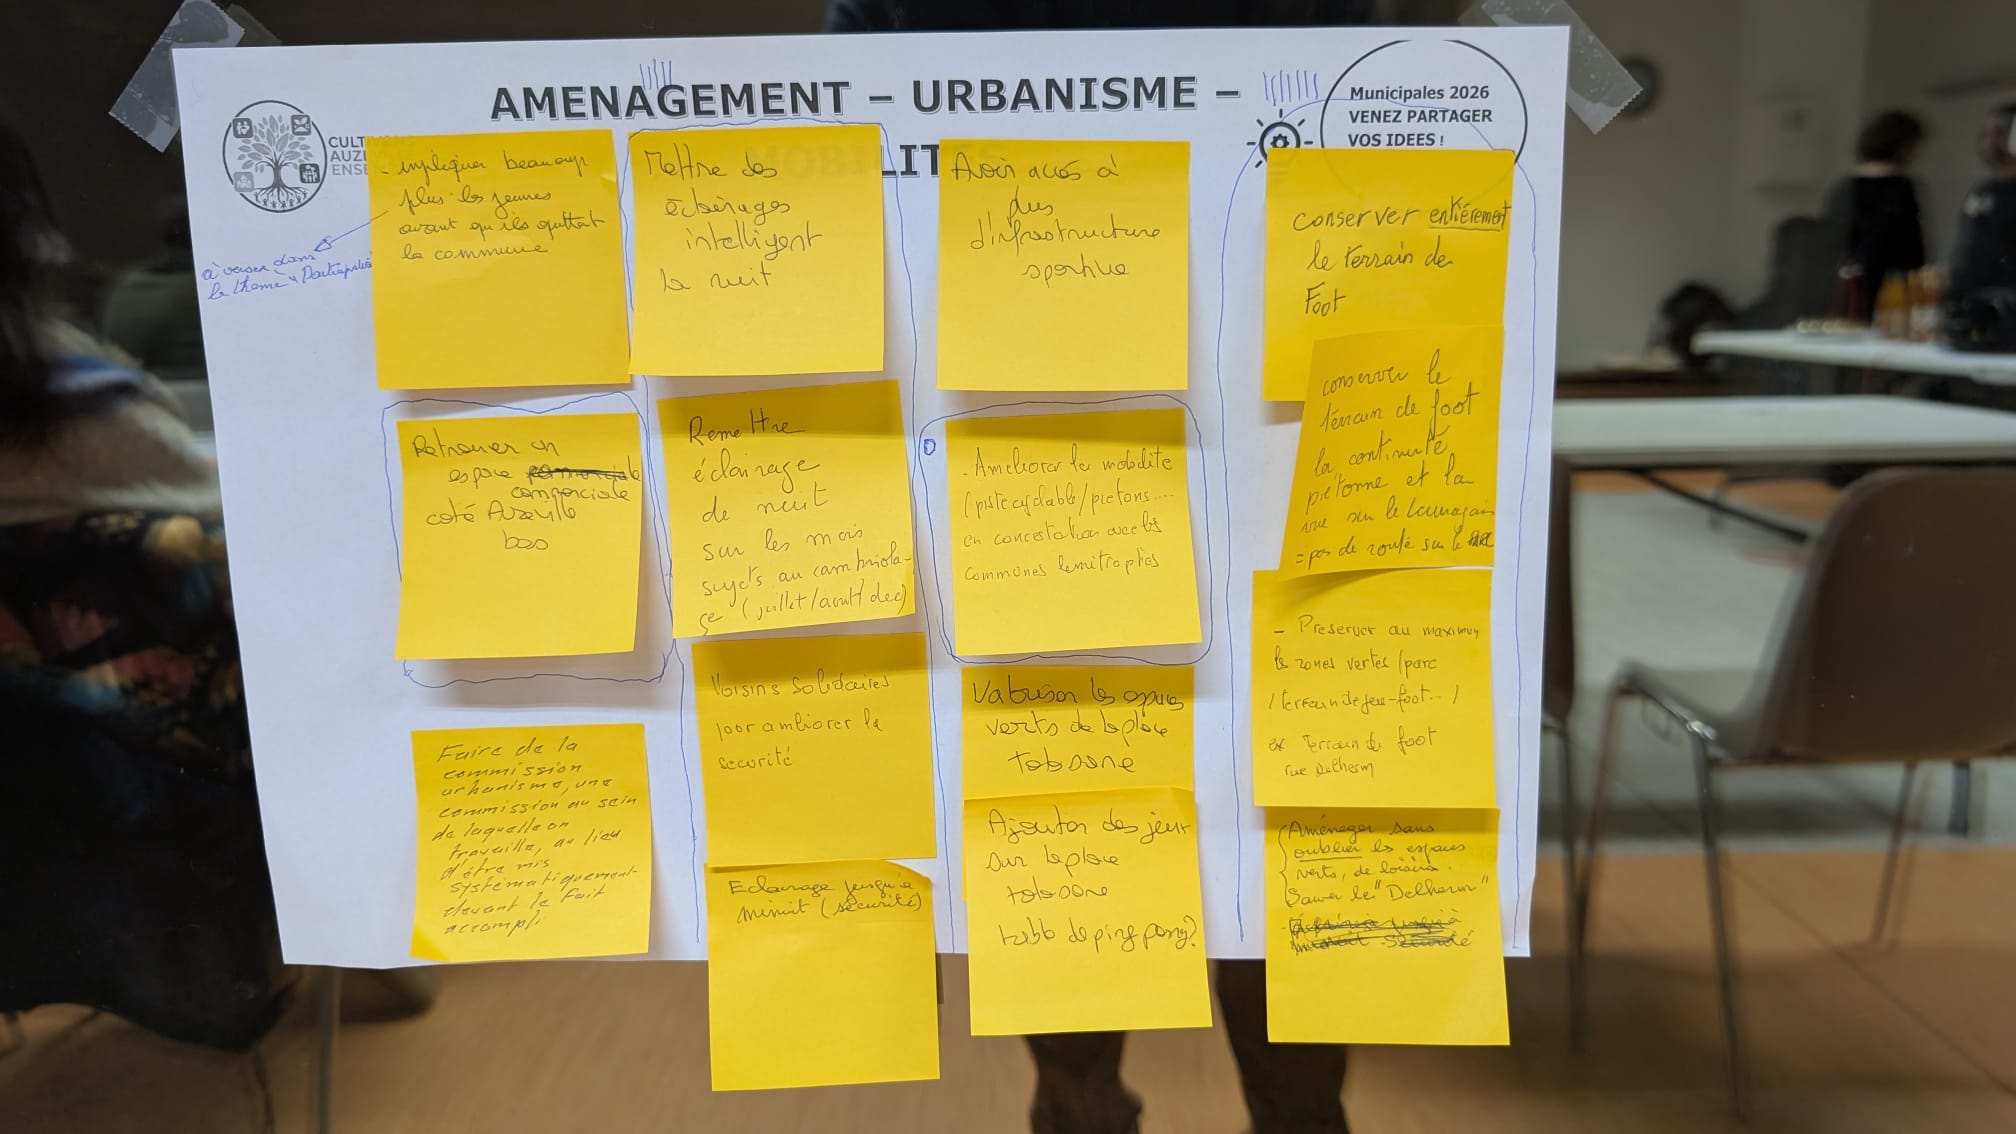 AMENAGEMENT – URBANISME –
MOBILITES
CULTIVONS
AUZE
ENSE
Municipales 2026
VENEZ PARTAGER
VOS IDEES !
- impliquer beaucoup
plus les jeunes
avant qu'ils quittent
la commune
à verser dans
le thème "Participation"
Retrouver un
espace commerciale
commerciale
coté Auzeville
bas
Faire de la
commission
urbanisme, une
commission au sein
de laquelle on
travaille, au lieu
d'être mis
systématiquement
devant le fait
accompli
Mettre des
éclairages
intelligent
la nuit
Remettre
éclairage
de nuit
sur les mois
sujets au cambriola-
ge (juillet/aout/dec)
Voisins Solidaires
pour améliorer la
securité
Eclairage jusqu'à
minuit (sécurité)
Avoir accés à
plus
d'infrastructure
sportive
- Améliorer la mobilité
(piste cyclable/pietons....
en concertation avec les
communes limitrophes
Valoriser les espaces
verts de la place
tolosane
Ajouter des jeux
sur la place
tolosane
table de ping pong?
conserver entièrement
le terrain de
Foot
conserver le
terrain de foot
la continuité
piétonne et la
vue sur le Lauragais
= pas de route sur le
- Preserver au maximum
les zones vertes /parc
/terrain de jeu-foot.../
ex Terrain de foot
rue Delherm
Aménager sans
oublier les espaces
verts, de loisirs.
Sauver le "Delherm"